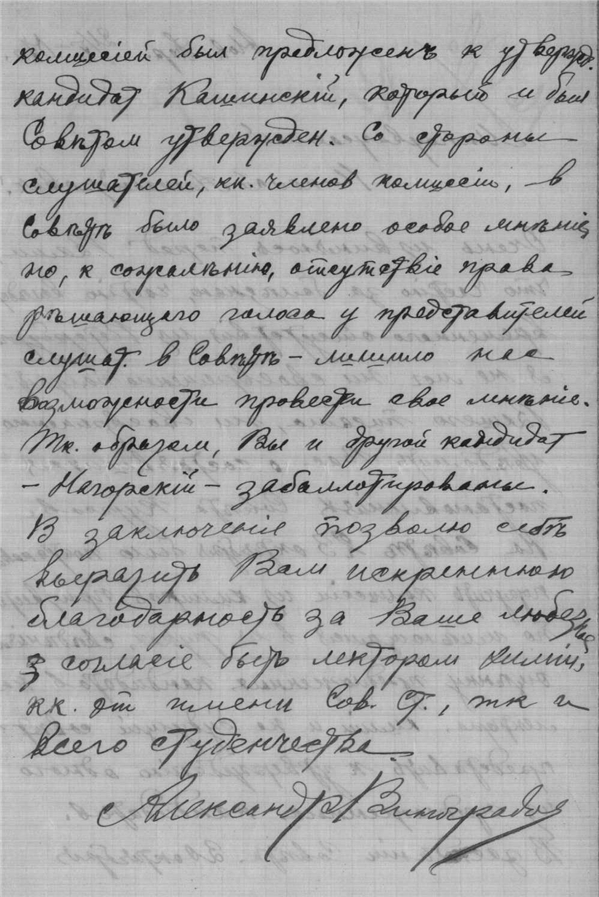 комиссіей был предложенъ к утвержд.
кандидат Кашинскій, который и был
Совѣтом утвержден. Со стороны
слушателей, кк. членов комиссіи, – в
Совѣтѣ было заявлено особое мнѣніе,
но, к сожалѣнію, отсутствіе права
рѣшающаго голоса у представителей
слушат. в Совѣтѣ – лишило нас
возможности провести свое мнѣніе.
Тк. образом, Вы и другой кандидат
– Нагорскій – забаллотированы.
В заключеніе позволю себѣ
выразить Вам искреннюю
благодарность за Ваше любезное
согласіе быть лектором химіи,
кк. от имени Сов. Ст., тк и
всего студенчества
Александр Виноградов